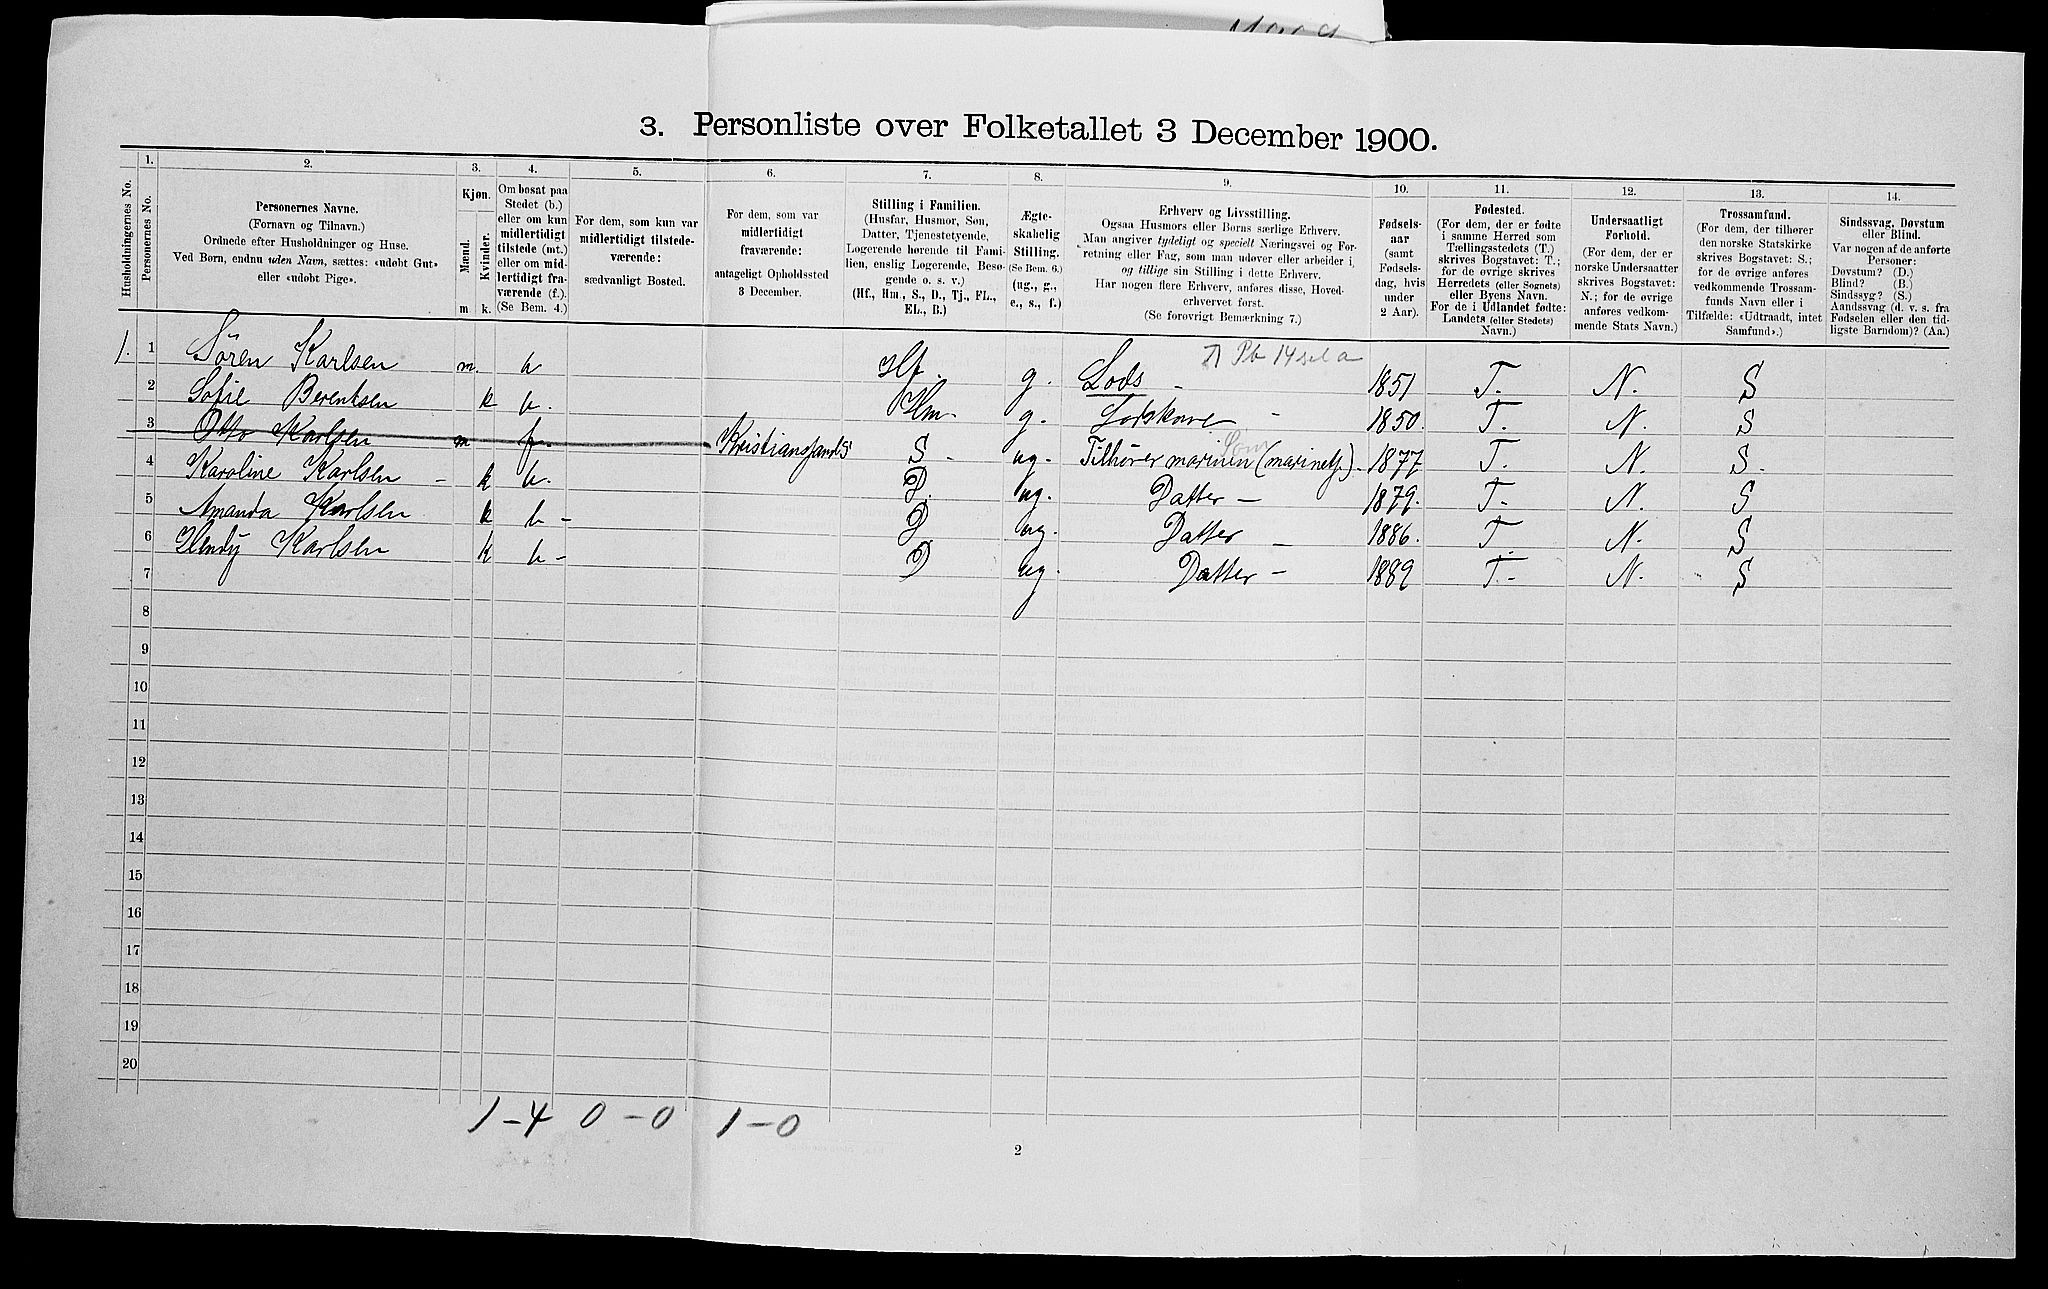 3. Personliste over Folketallet 3 December 1900.
1. 2. 3. 4. 5. 6. 7. 8. 9. 10. 11. 12. 13. 14.
Husholdningernes No.
Personernes No.
Personernes Navne.
(Fornavn og Tilnavn.)
Ordnede efter Husholdninger og Huse.
Ved Børn, endnu uden Navn, sættes: «udøbt Gut»
eller «udøbt Pige».
Kjøn.
Mænd.
Kvinder.
m. k.
Om bosat paa
Stedet (b.)
eller om kun
midlertidigt
tilstede (mt.)
eller om mid-
lertidigt fra-
værende (f.).
(Se Bem. 4.)
For dem, som kun var
midlertidigt tilstede-
værende:
sædvanligt Bosted.
For dem, som var
midlertidigt
fraværende:
antageligt Opholdssted
3 December.
Stilling i Familien.
(Husfar, Husmor, Søn,
Datter, Tjenestetyende,
Logerende hørende til Fami-
lien, enslig Logerende, Besø-
gende o. s. v.)
(Hf., Hm., S., D., Tj., FL.,
EL., B.)
Ægte-
skabelig
Stilling.
(Se Bem. 6.)
(ug., g.,
e., s., f.)
Erhverv og Livsstilling.
Ogsaa Husmors eller Børns særlige Erhverv.
Man angiver tydeligt og specielt Næringsvei og For-
retning eller Fag, som man udøver eller arbeider i,
og tillige sin Stilling i dette Erhverv.
Har nogen flere Erhverv, anføres disse, Hoved-
erhvervet først.
(Se forøvrigt Bemærkning 7.)
Fødsels-
aar
(samt
Fødsels-
dag, hvis
under
2 Aar).
Fødested.
(For dem, der er fødte
i samme Herred som
Tællingsstedets (T.)
skrives Bogstavet: T.;
for de øvrige skrives
Herredets (eller Sognets)
eller Byens Navn.
For de i Udlandet fødte:
Landets (eller Stedets)
Navn.)
Undersaatligt
Forhold.
(For dem, der er
norske Undersaatter
skrives Bogstavet:
N.; for de øvrige
anføres vedkom-
mende Stats Navn.)
Trossamfund.
(For dem, der tilhører
den norske Statskirke
skrives Bogstavet: S.;
for de øvrige anføres
vedkommende Trossam-
funds Navn eller i
Tilfælde: «Udtraadt, intet
Samfund».)
Sindssvag, Døvstum
eller Blind.
Var nogen af de anførte
Personer:
Døvstum? (D.)
Blind? (B.)
Sindssyg? (S.)
Aandssvag (d. v. s. fra
Fødselen eller den tid-
ligste Barndom)? (Aa.)
1. 1 Sören Karlsen m. b Hf. g. Lods - 1851 T. N. S
2 Sofie Berentsen k b. Hm. g. Lodskone - 1850. T. N. S
3 Otto Karlsen m f. Kristiansands S - ug. Tilhører marinen (marinetj.). 1877 T. N. S.
4 Karoline Karlsen - k b. D. ug. Datter - 1879. T. N. S
5 Amanda Karlsen k b - D ug. Datter - 1886. T. N. S
6 Hendy Karlsen k b - D ug. Datter - 1889 T. - N. S
7
8
9
10
11
12
13
14
15
16
17
18
19
20
1-4 0-0 1-0
2